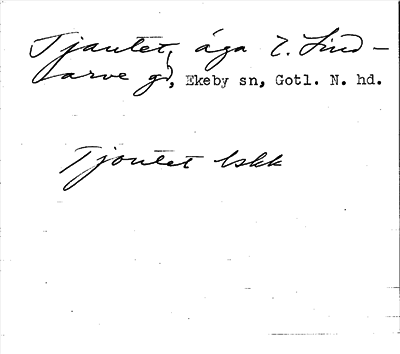 Tjautet, äga t. Lind-
arve gd, Ekeby sn, Gotl. N. hd.
Tjoutet lskk